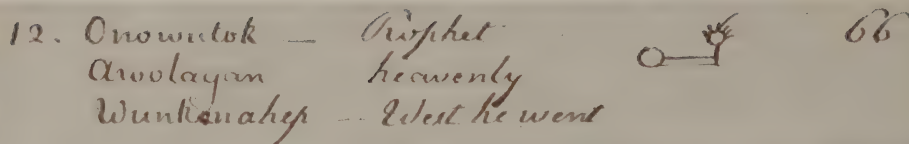 12. Onowutok — Prophet 66
Awolagan heavenly
Wunkenahep — West he went